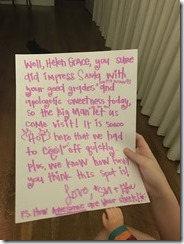 Well, Helen Grace, you sure
did impress Santa with
your good grades and
apologetic sweetness today,
so the big man let us
come visit! It is sooo
"Hot" here that we had
to cool off quickly.
Plus, we know how funny
you think this spot is!
Love,
P.S. How awesome are your